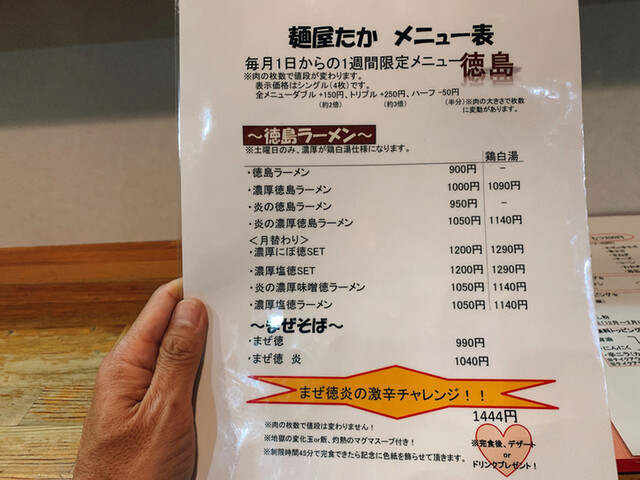 麺屋たか　メニュー表
毎月1日からの1週間限定メニュー徳島
※肉の枚数で値段が変わります。
表示価格はシングル(4枚)です。
全メニューダブル +150円、トリプル +250円、ハーフ -50円
(約2倍) (約3倍) (半分) ※肉の大きさで枚数に変動があります。
～徳島ラーメン～
※土曜日のみ、濃厚が鶏白湯仕様になります。 鶏白湯
・徳島ラーメン 900円 －
・濃厚徳島ラーメン 1000円 1090円
・炎の徳島ラーメン 950円 －
・炎の濃厚徳島ラーメン 1050円 1140円
＜月替わり＞
・濃厚にぼ徳SET 1200円 1290円
・濃厚塩徳SET 1200円 1290円
・炎の濃厚味噌徳ラーメン 1050円 1140円
・濃厚塩徳ラーメン 1050円 1140円
～まぜそば～
・まぜ徳 990円
・まぜ徳 炎 1040円
まぜ徳炎の激辛チャレンジ！！
1444円
※肉の枚数で値段は変わりません！
※地獄の変化玉or飯、灼熱のマグマスープ付き！
※制限時間45分で完食できたら記念に色紙を飾らせて頂きます。
※完食後、デザート
or
ドリンクプレゼント！